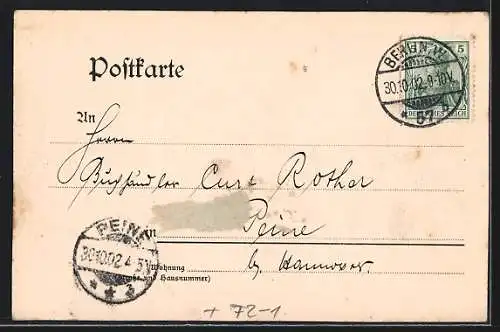 BERLIN W.
30.10.02.9-10V.
* 57
5
DEUTSCHES REICH
Postkarte
An
Herrn
Buchhändler Curt Rother
in Peine
b/ Hannover.
Wohnung
(Straße und Hausnummer)
PEINE
30.10.02.4-5
* * 3
+ 72-1